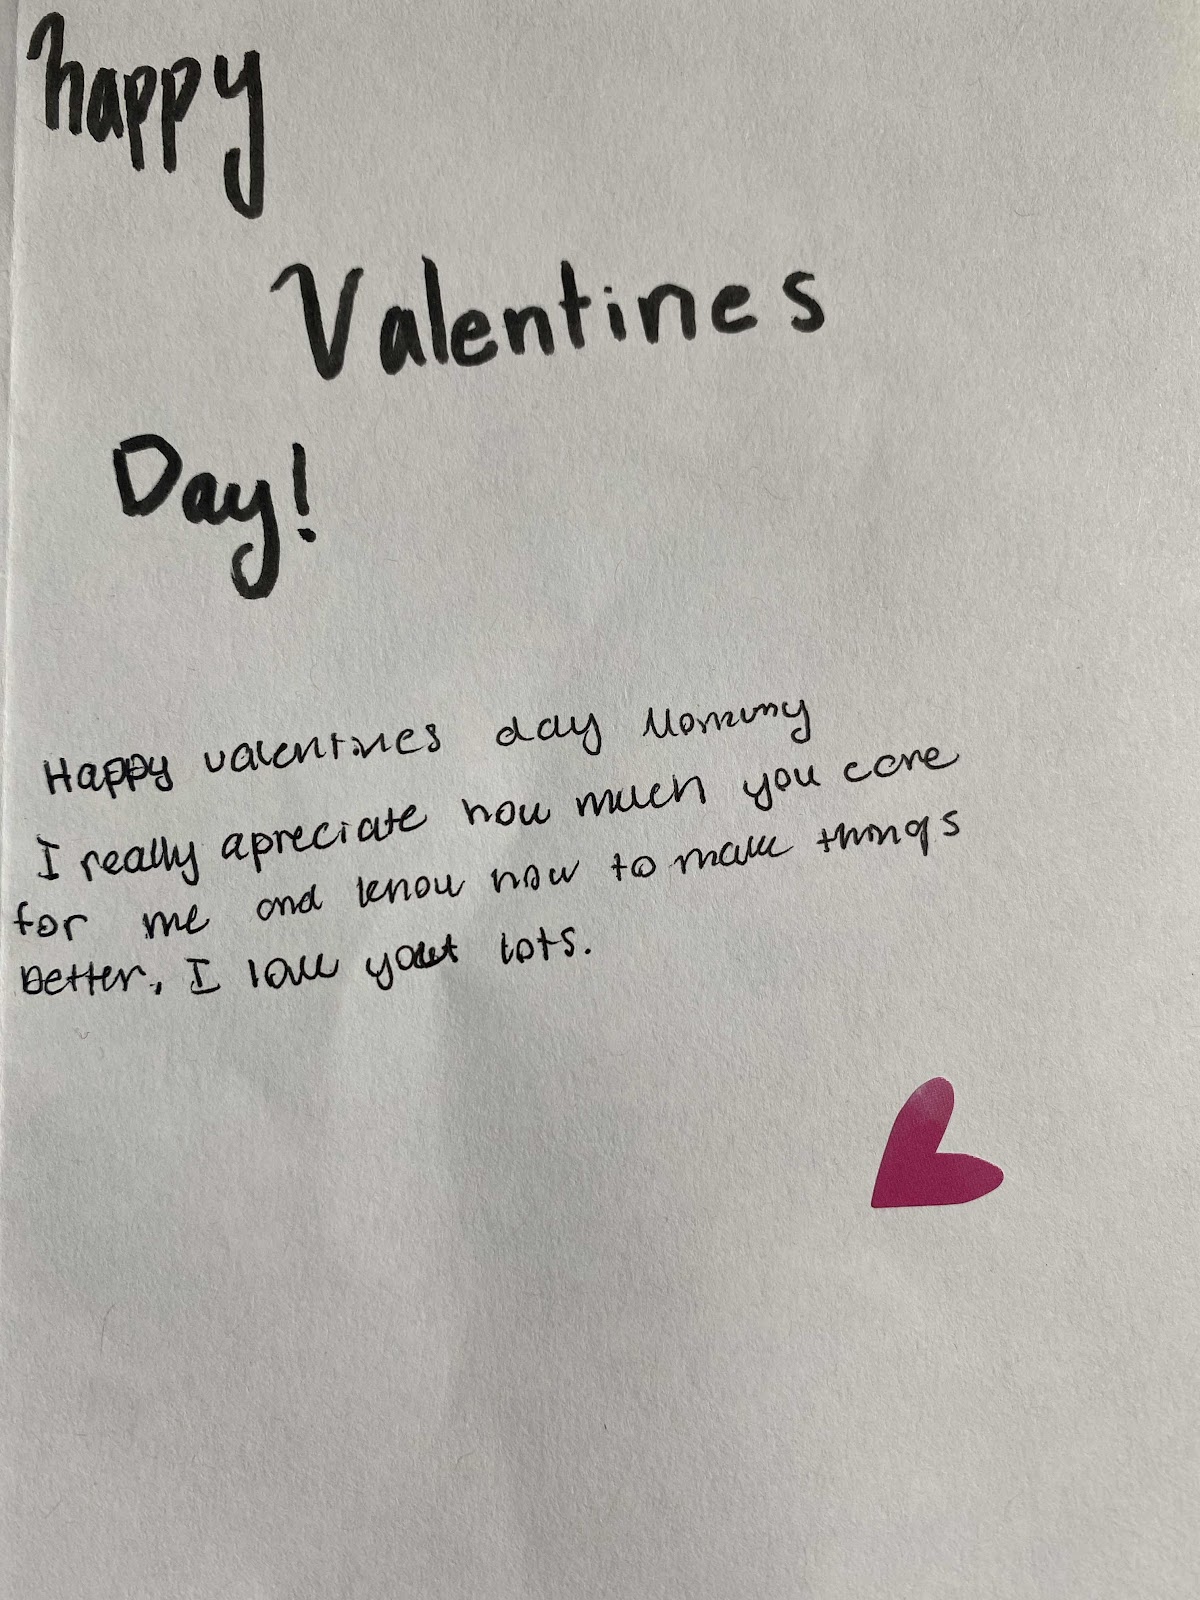 happy
Valentines
Day!
Happy valentines day Mommy
I really apreciate how much you care
for me and know how to make things
better. I love you lots.